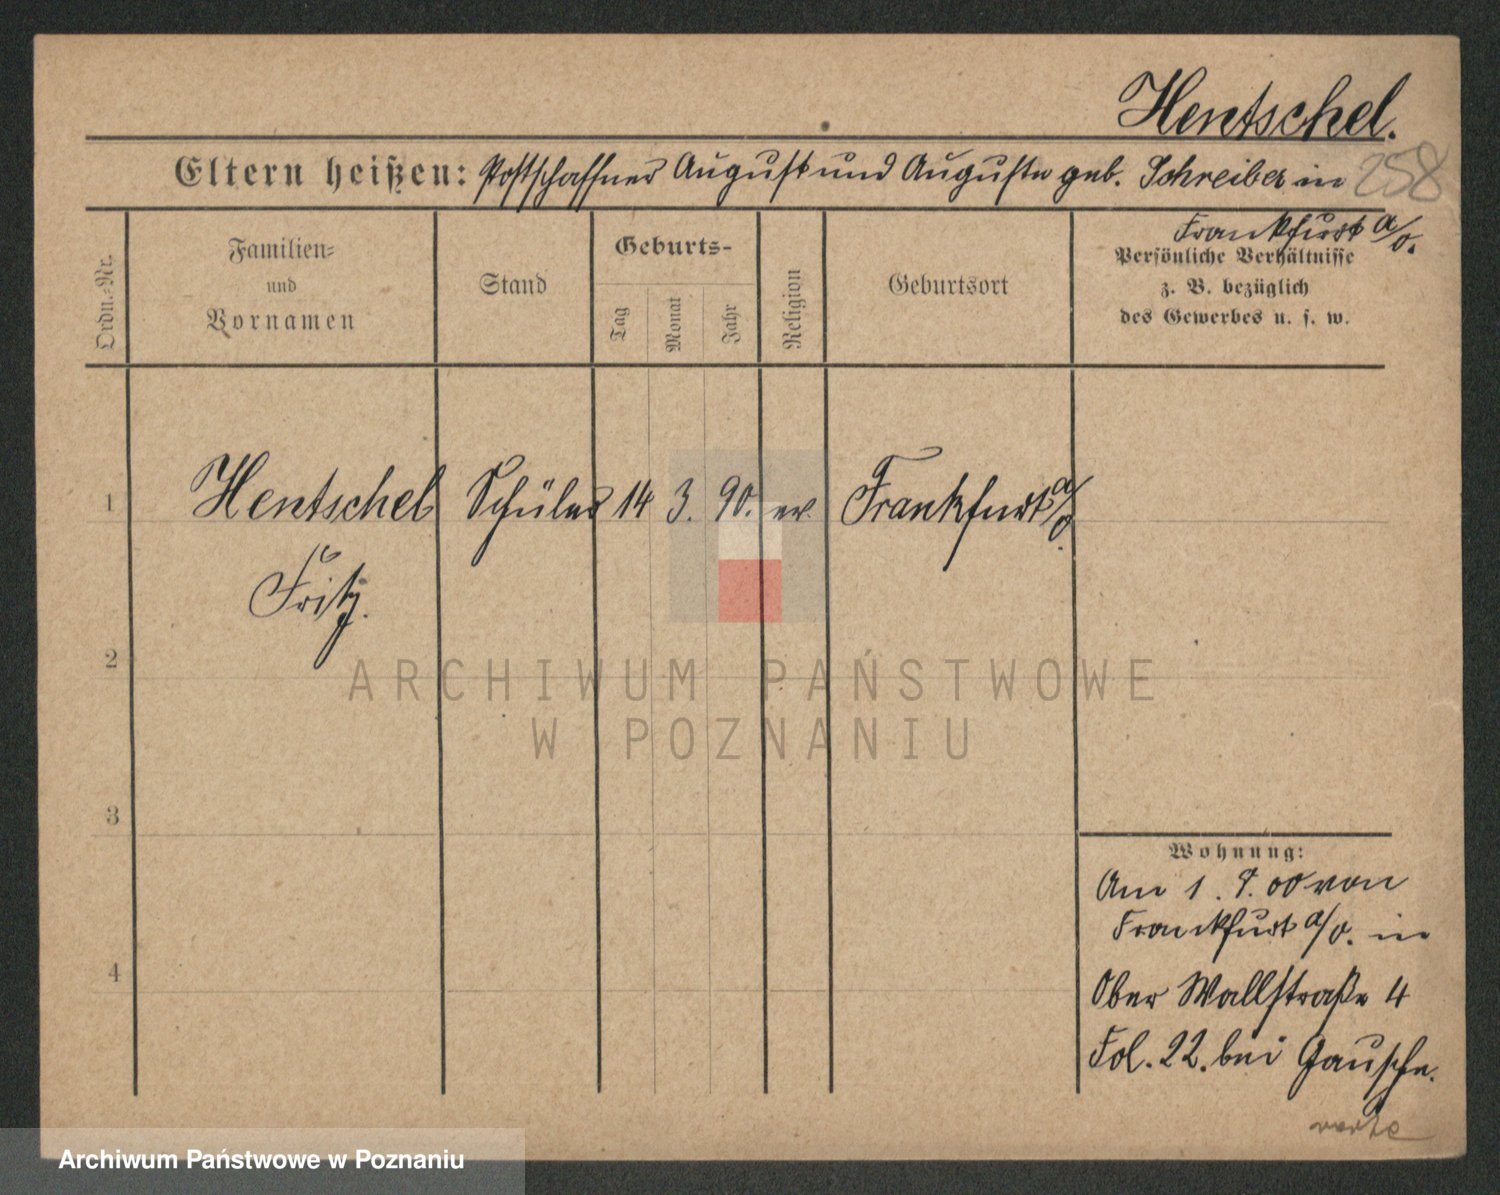 Hentschel.
Eltern heißen: Postschaffner August und Auguste geb. Schreiber in 258
Frankfurt a/O.
Ordn.-Nr.
Familien-
und
Vornamen
Stand
Geburts-
Tag
Monat
Jahr
Religion
Geburtsort
Persönliche Verhältnisse
z. B. bezüglich
des Gewerbes u. s. w.
1 Hentschel Schüler 14 3. 90. ev. Frankfurt a/O.
Fritz.
2
ARCHIWUM PAŃSTWOWE
W POZNANIU
3
Wohnung:
Am 1. 9. 00 von
Frankfurt a/O. in
Ober Wallstraße 4
4
Fol. 22. bei Gausche.
verte
Archiwum Państwowe w Poznaniu